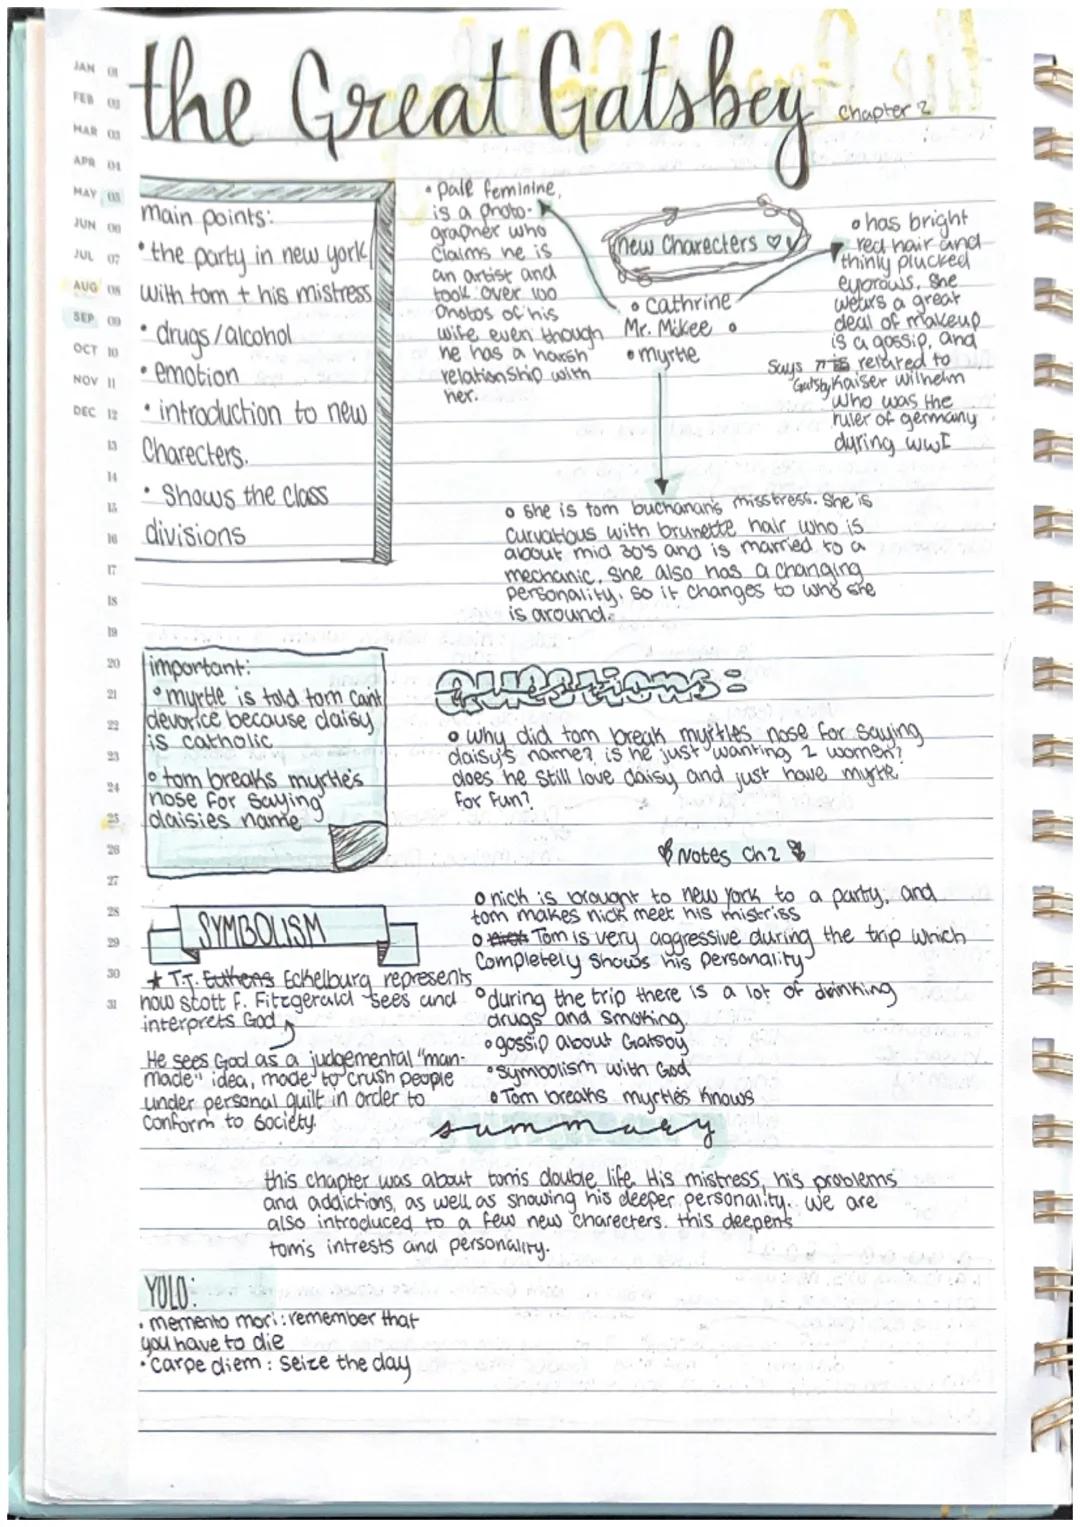 the Great Gatsbey
Chapter 2
JAN 01
FEB 02
MAR 03
APR 04
MAY 05
JUN 06
JUL 07
AUG 08
SEP 09
OCT 10
NOV 11
DEC 12
13
14
15
16
17
18
19
20
21
22
23
24
25
26
27
28
29
30
31
main points:
• the party in new york
with tom + his mistress
• drugs/alcohol
• emotion
• introduction to new
Charecters.
• Shows the class
divisions
• pale feminine,
is a photo-
grapher who
claims he is
an artist and
took over 100
Photos of his
wife even though
he has a harsh
relationship with
her.
new Charecters ♡
• Cathrine
Mr. Mckee •
• myrtle
• has bright
red hair and
thinly plucked
eyebrows. She
wears a great
deal of makeup
is a gossip, and
Says is related to
Gatsby Kaiser Wilhelm
who was the
ruler of germany
during WWI
• she is tom buchanan's misstress. She is
curvatious with brunette hair who is
about mid 30's and is married to a
mechanic. She also has a changing
personality. so it changes to who she
is around.
important:
• myrtle is told tom cant
devorice because daisy
is catholic
• tom breaks myrtle's
nose for saying
daisies name
Questions:
• Why did tom break myrtles nose for saying
daisy's name? is he just wanting 2 women?
does he still love daisy and just have myrtle
for fun?
Notes Ch2
• nick is brought to New York to a party, and
tom makes nick meet his mistriss
• Tom is very aggressive during the trip which
completely shows his personality
• during the trip there is a lot of drinking
drugs and smoking.
• gossip about Gatsby
• symbolism with God
• Tom breaks myrtles knows
SYMBOLISM
★ T.J. Eckelburg represents
how scott F. Fitzgerald sees and
interprets God
He sees God as a judgemental "man-
made" idea, made to crush people
under personal guilt in order to
conform to society.
summary
this chapter was about tom's double life. His mistress, his problems
and addictions, as well as showing his deeper personality. We are
also introduced to a few new charecters. this deepens
tom's intrests and personality.
YOLO:
• memento mori: remember that
you have to die
• carpe diem: seize the day